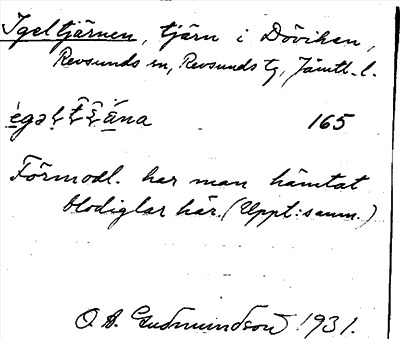 Igeltjärnen, tjärn i Döviken,
Revsunds sn, Revsunds tg, Jämtl. l.
165
Förmodl. har man hämtat
blodiglar här. (Uppt: samm.)
O. A. Gudmundson 1931.